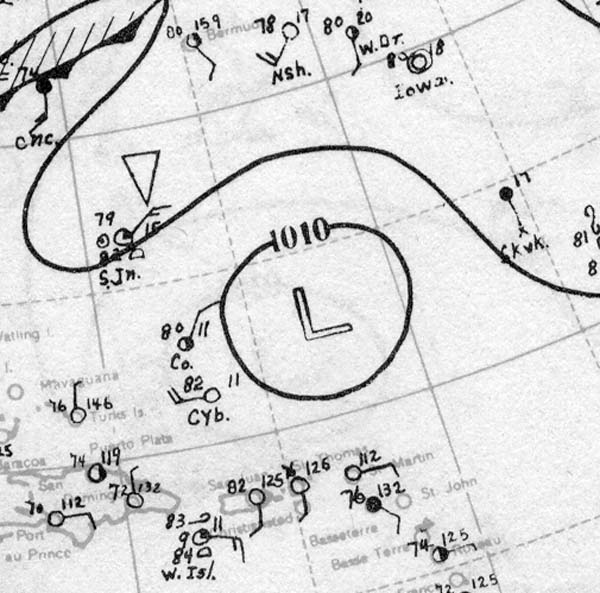 80 159
Bermuda
78 17
Nsh.
80 20
W.Dr.
18
Iowa.
74
Cnc.
79
15
S.Jn.
17
Skwk.
81
8
1010
L
80 11
Co.
82 11
Cyb.
Watling I.
I.
Mavaguana
76 146
Turks Is.
Puerto Plata
Baracoa
74 119
San
Domingo
72 132
70 112
Port
au Prince
St. Thomas
82 125
76 126
112
Martin
76 132
St. John
Christiansted
83 11
9
84
W. Isl.
Basseterre
Basse Terre
74 125
Roseau
72 125